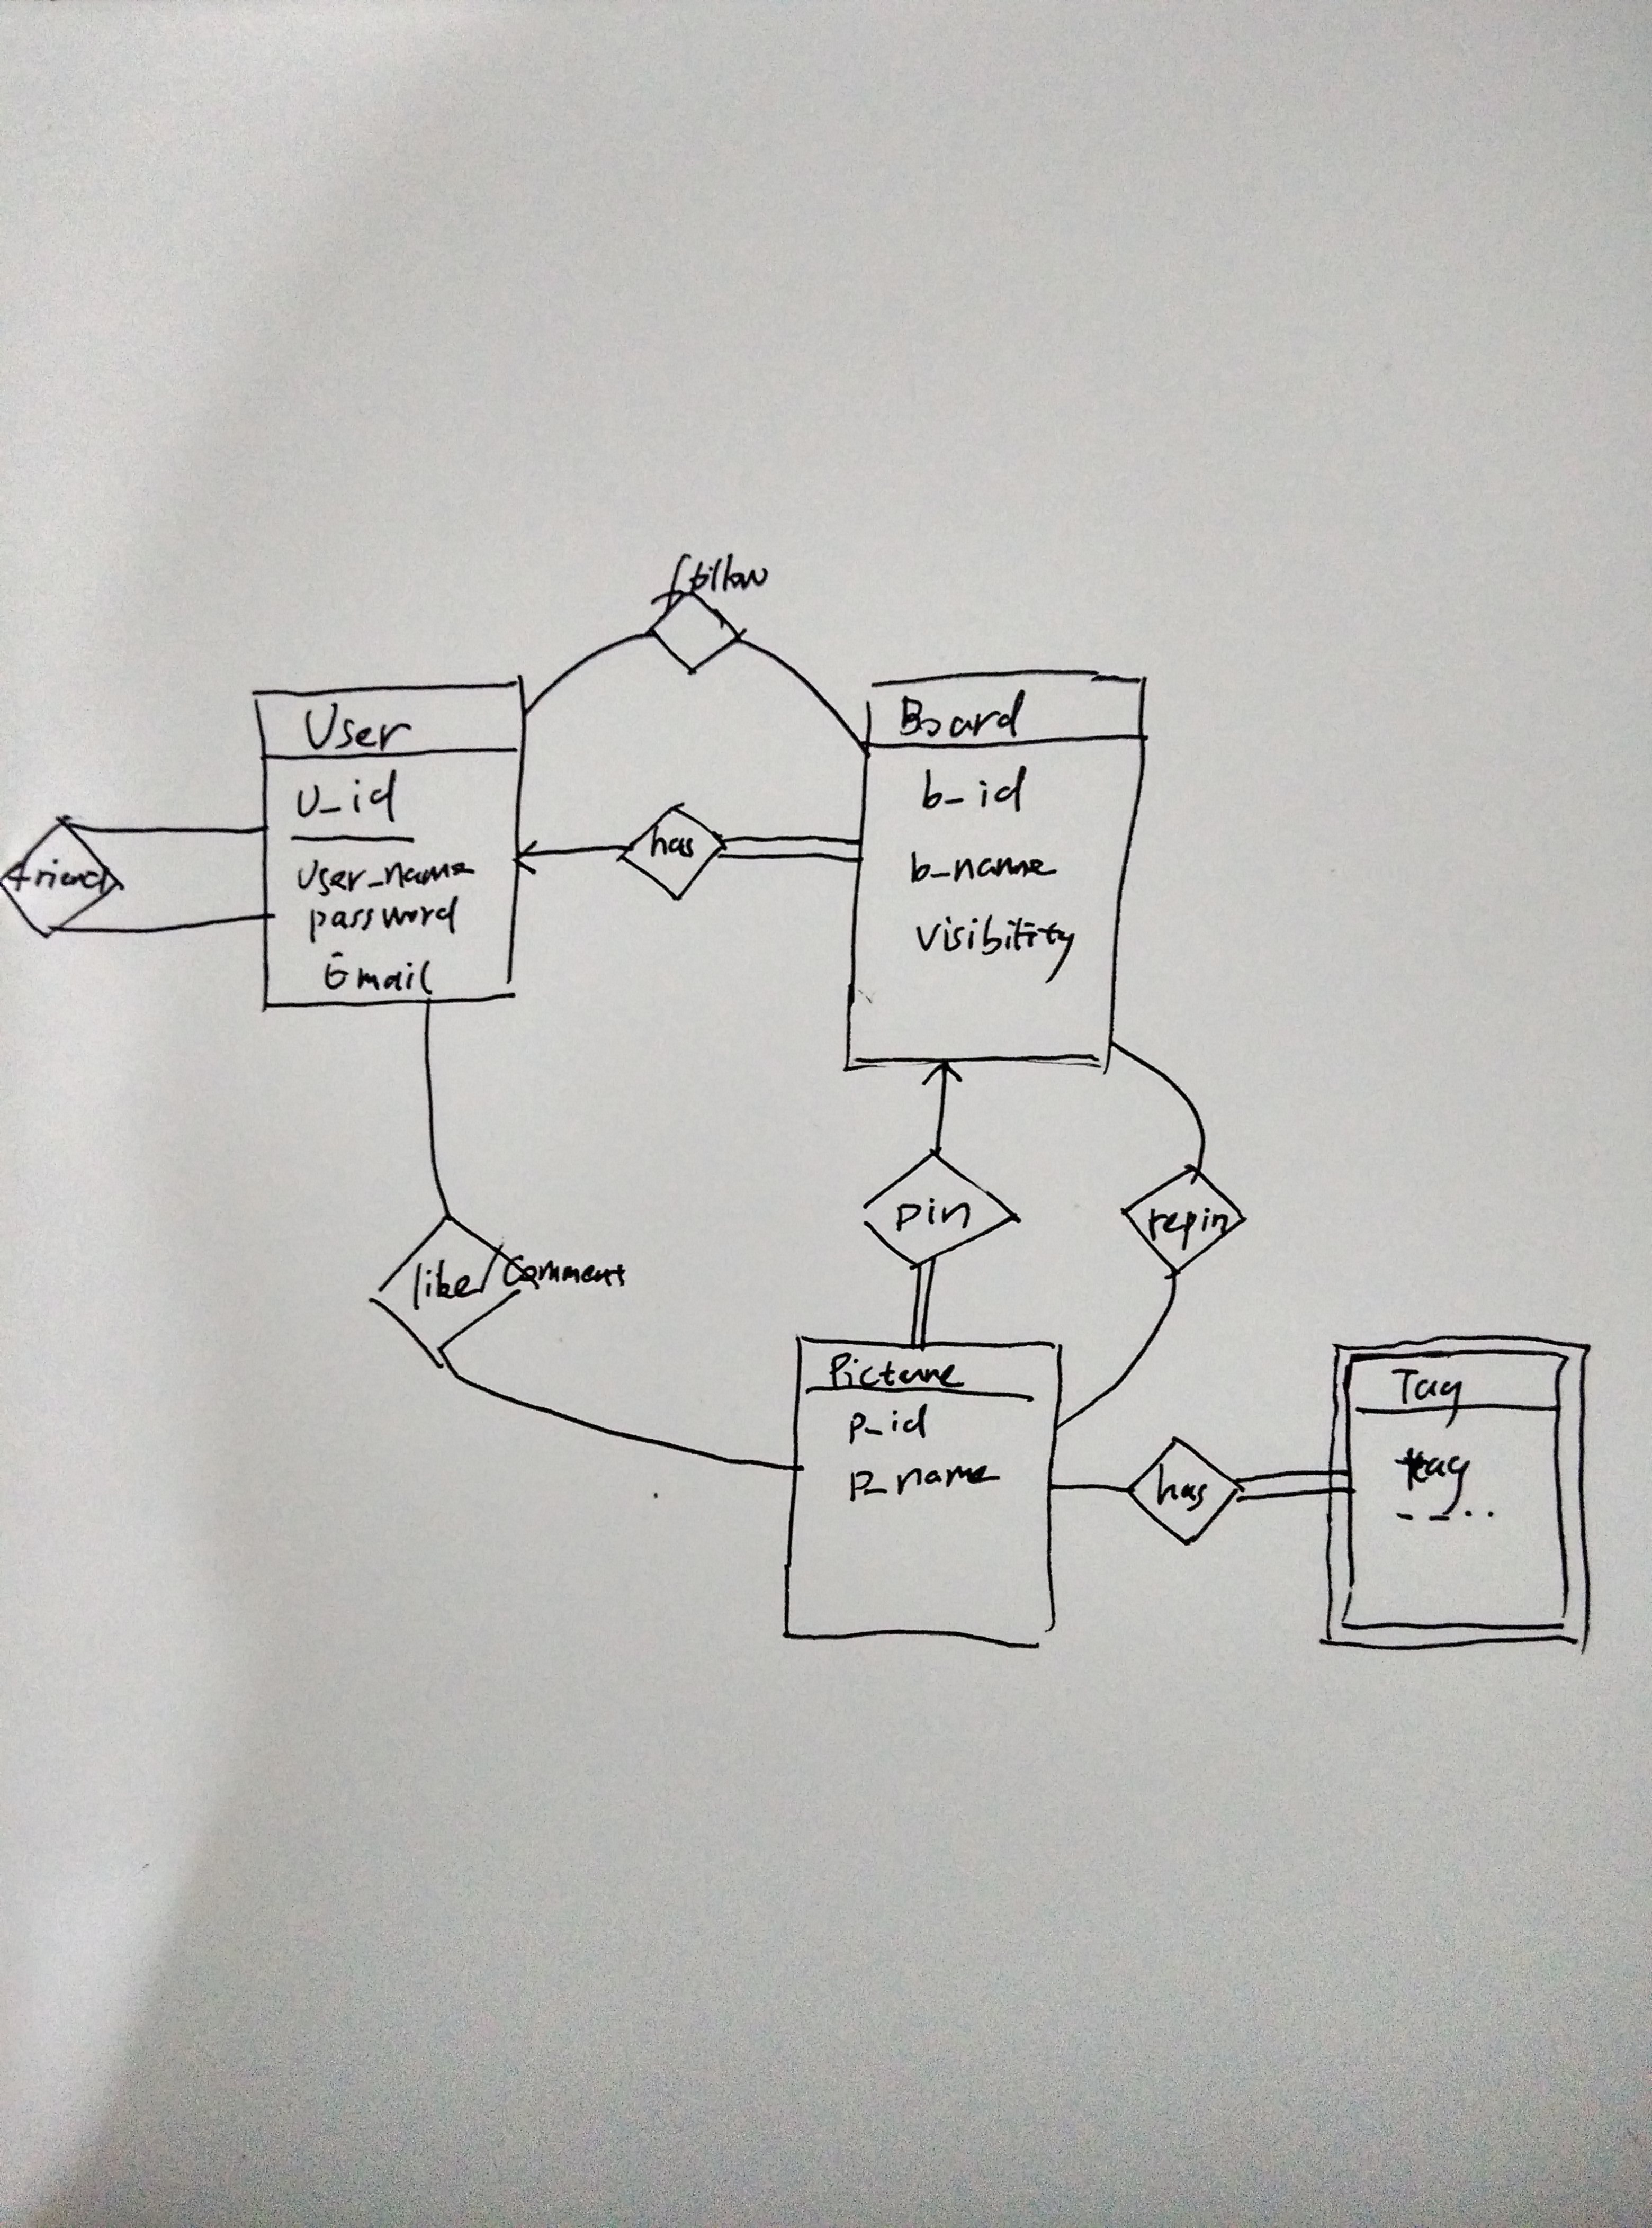 follow
User
U_id
User_name
password
Email
friend
has
Board
b_id
b_name
Visibility
like/Comment
pin
repin
Picture
P_id
P_name
has
Tag
tag